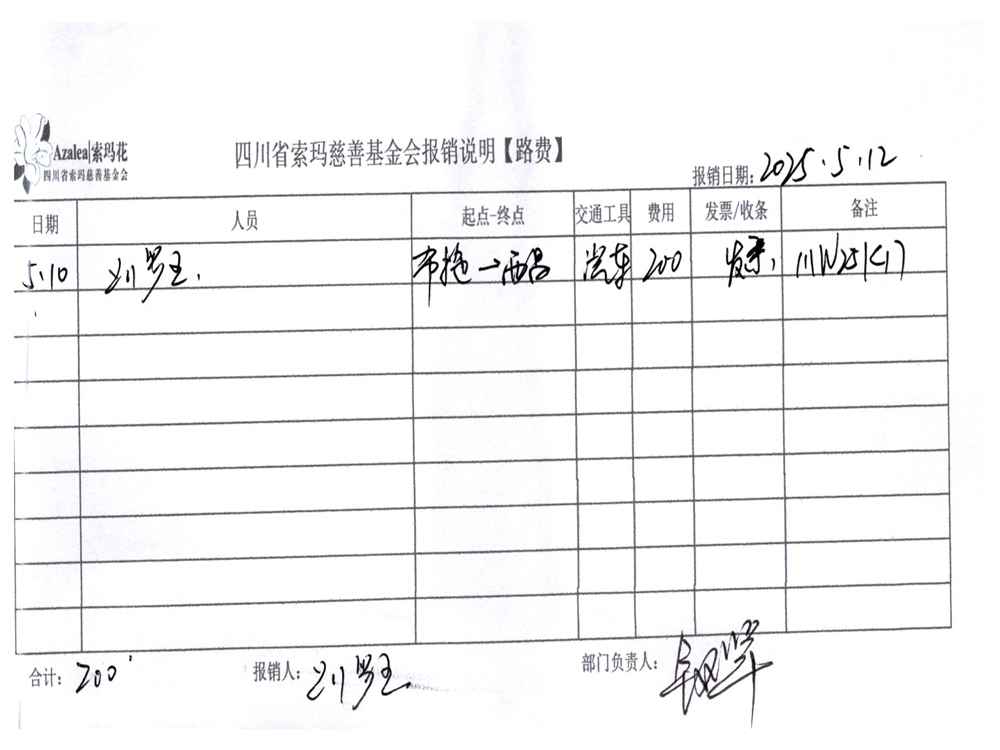 Azalea|索玛花
四川省索玛慈善基金会
四川省索玛慈善基金会报销说明【路费】
报销日期：2025.5.12
日期 人员 起点-终点 交通工具 费用 发票/收条 备注
5.10 刘罗王 布拖→西昌 汽车 200 发票 川W251K7
合计：200
报销人：刘罗王
部门负责人：